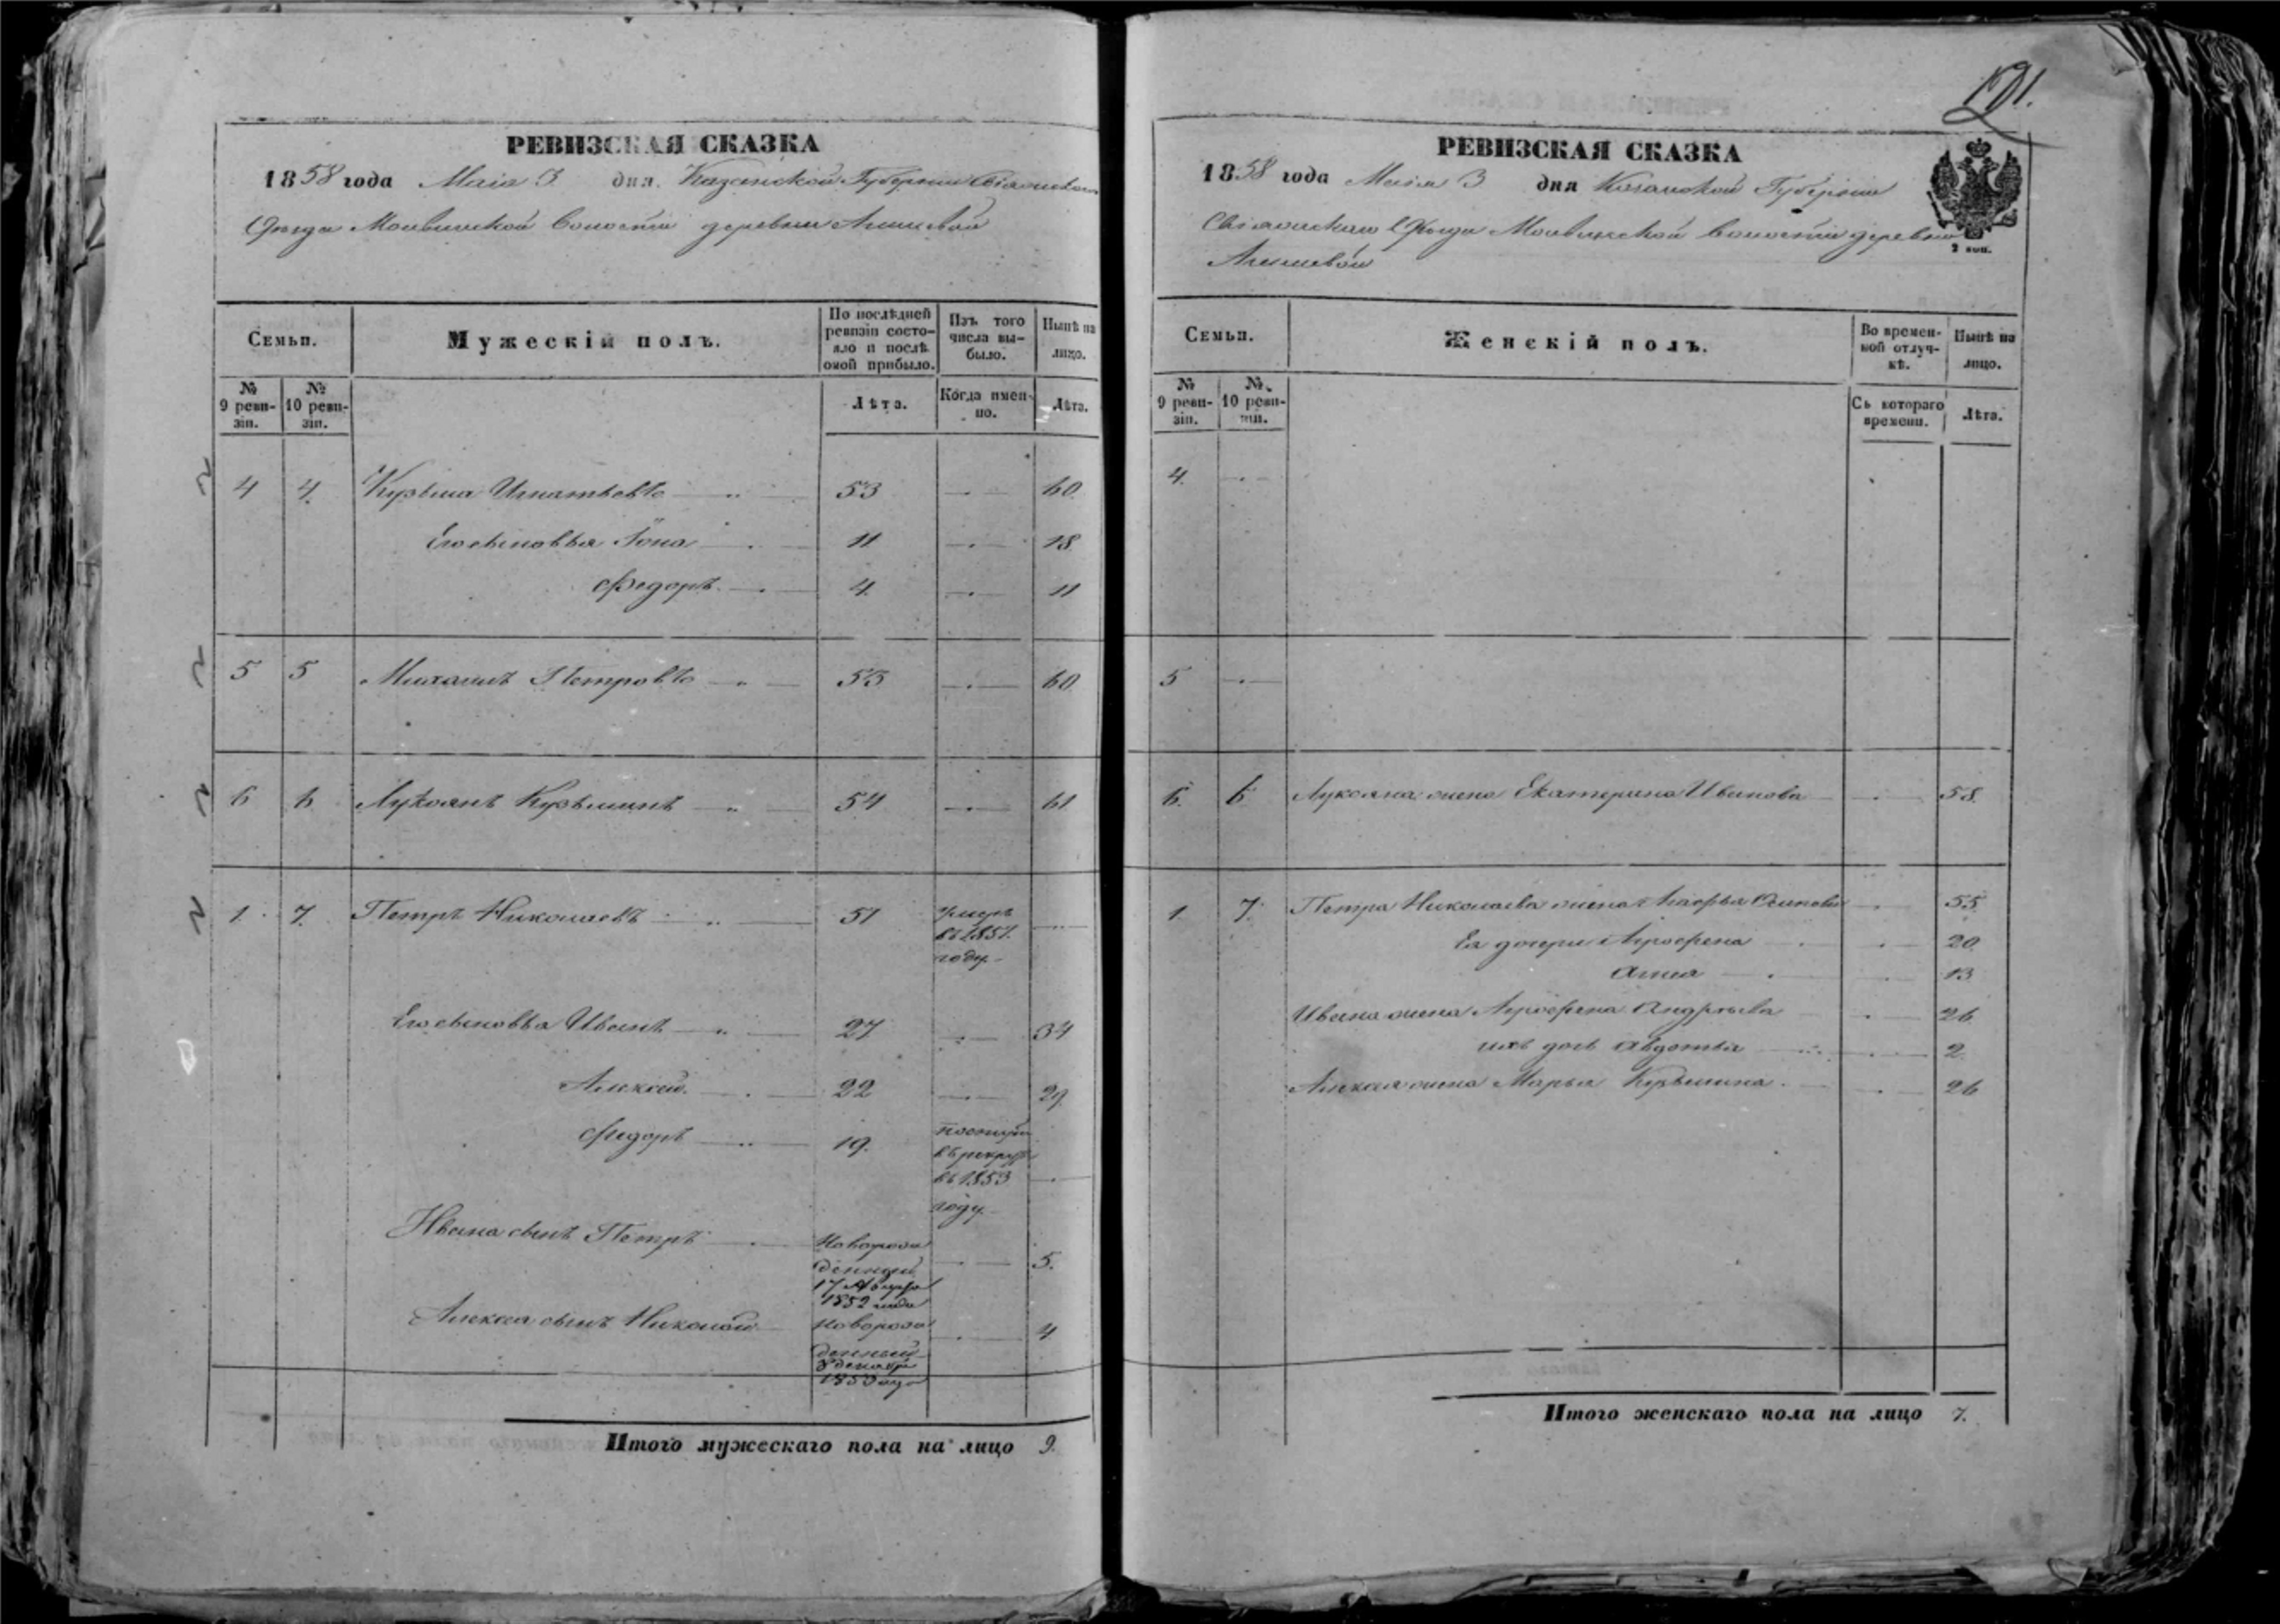 191.
РЕВИЗСКАЯ СКАЗКА
1858 года Маія 3 дня. Казанской Губерніи Свіяжскаго
Уѣзда Моквинской Волости деревни
Семьи.
Мужескій полъ.
По послѣдней ревизіи состояло и послѣ оной прибыло.
Изъ того числа выбыло.
Нынѣ на лицо.
№ 9 ревизіи.
№ 10 ревизіи.
Лѣта.
Когда именно.
Лѣта.
4 4. Кузьма Игнатьевъ 53 60.
Его сыновья Іона 11 18.
Федоръ 4. 11
5 5 Михаилъ Петровъ 53 60
6 6 Лукоянъ Кузьминъ 54 61
1. 7. Петръ Николаевъ 51 умеръ
въ 1851.
году
Его сыновья Иванъ 27 34
Алексѣй. 22 29.
Федоръ 19.
въ рекруты
въ 1853
году
Ивана сынъ Петръ Новорож
денный 5.
17 Августа
1852 года
Алексѣя сынъ Николай Новорож 4
денный
8 декабря
1853 года
Итого мужескаго пола на лицо 9.
РЕВИЗСКАЯ СКАЗКА
1858 года Маія 3 дня Казанской Губерніи
Свіяжскаго Уѣзда Моквинской Волости деревни
2 коп.
Семьи.
Женскій полъ.
Во временной отлучкѣ.
Нынѣ на лицо.
№ 9 ревизіи.
№ 10 ревизіи.
Съ котораго времени.
Лѣта.
4.
5
6. 6. Лукояна жена Екатерина Иванова 58.
1. 7. Петра Николаева жена Осипова 55
Ея дочери Агрофена 20
Анна 13
Ивана жена Агрофена Андреева 26
ихъ дочь Авдотья 2.
Алексѣя жена Марья Кузьмина. 26
Итого женскаго пола на лицо 7.